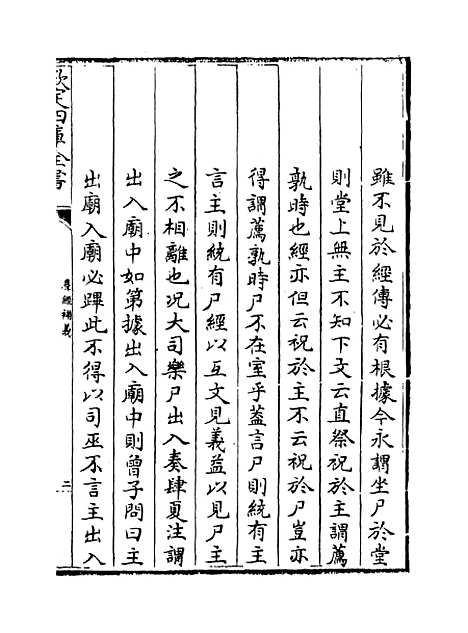 雖不見於經傳必有根據今永謂坐尸於堂
則堂上無主不知下文云直祭祝於主謂薦
孰時也經亦但云祝於主不云祝於尸豈亦
得謂薦孰時尸不在室乎蓋言尸則統有主
言主則統有尸經以互文見義益以見尸主
之不相離也况大司樂尸出入奏肆夏注謂
出入廟中如第據出入廟中則曾子問曰主
出廟入廟必蹕此不得以司巫不言主出入
欽定四庫全書
羣經補義
二